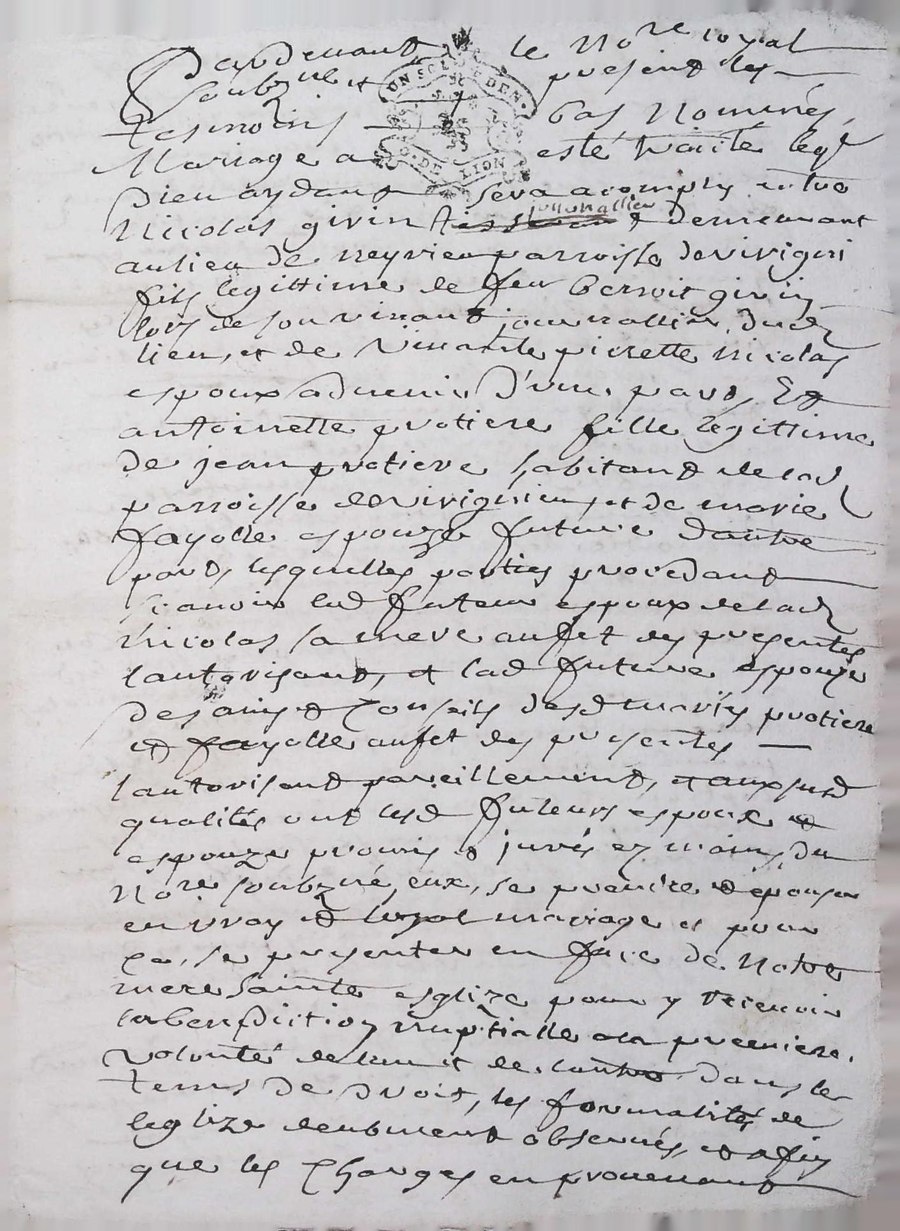 Pardevant le No.re royal
soubz.né et present les
tesmoins bas Nommés,
UN SOL SIX DEN.
G. DE LION
Mariage a esté traicté leql
Dieu aydant sera acomply entre
journallier
Nicolas givin & demeurant
au lieu de neyrieu parroisse de virigni
fils legittime de feu Benoit givin
lors de son vivant journallier dud
lieu, et de vivante pierrette nicolas
espoux advenir d'une part, Et
antoinette protiere fille legittime
de jean protiere habitant de lad
parroisse de virignieu, et de marie
fayolle espouze future d'autre
part, lesquelles parties procedant
scavoir led futeur espoux de lad
nicolas sa mere au fet des presentes
l'autorisant, et lad future espouze
des avis & Conseils desd mariés protiere
et fayolle au fet des presentes
l'autorisant pareillement, et aux susd
qualités ont lesd futeurs espoux et
espouze promis & jurés ez mains du
No.re soubz.né eux, se prendre & épouser
en vray & loyal mariage et pour
ce, se presenter en face de Notre
mere Sainte esglize pour y recevoir
la benediction nuptialle a la premiere
volonté de l'un et de l'autre dans le
tems de droit, les formalités de
leglize deubment observés, et affin
que les Charges en provenant